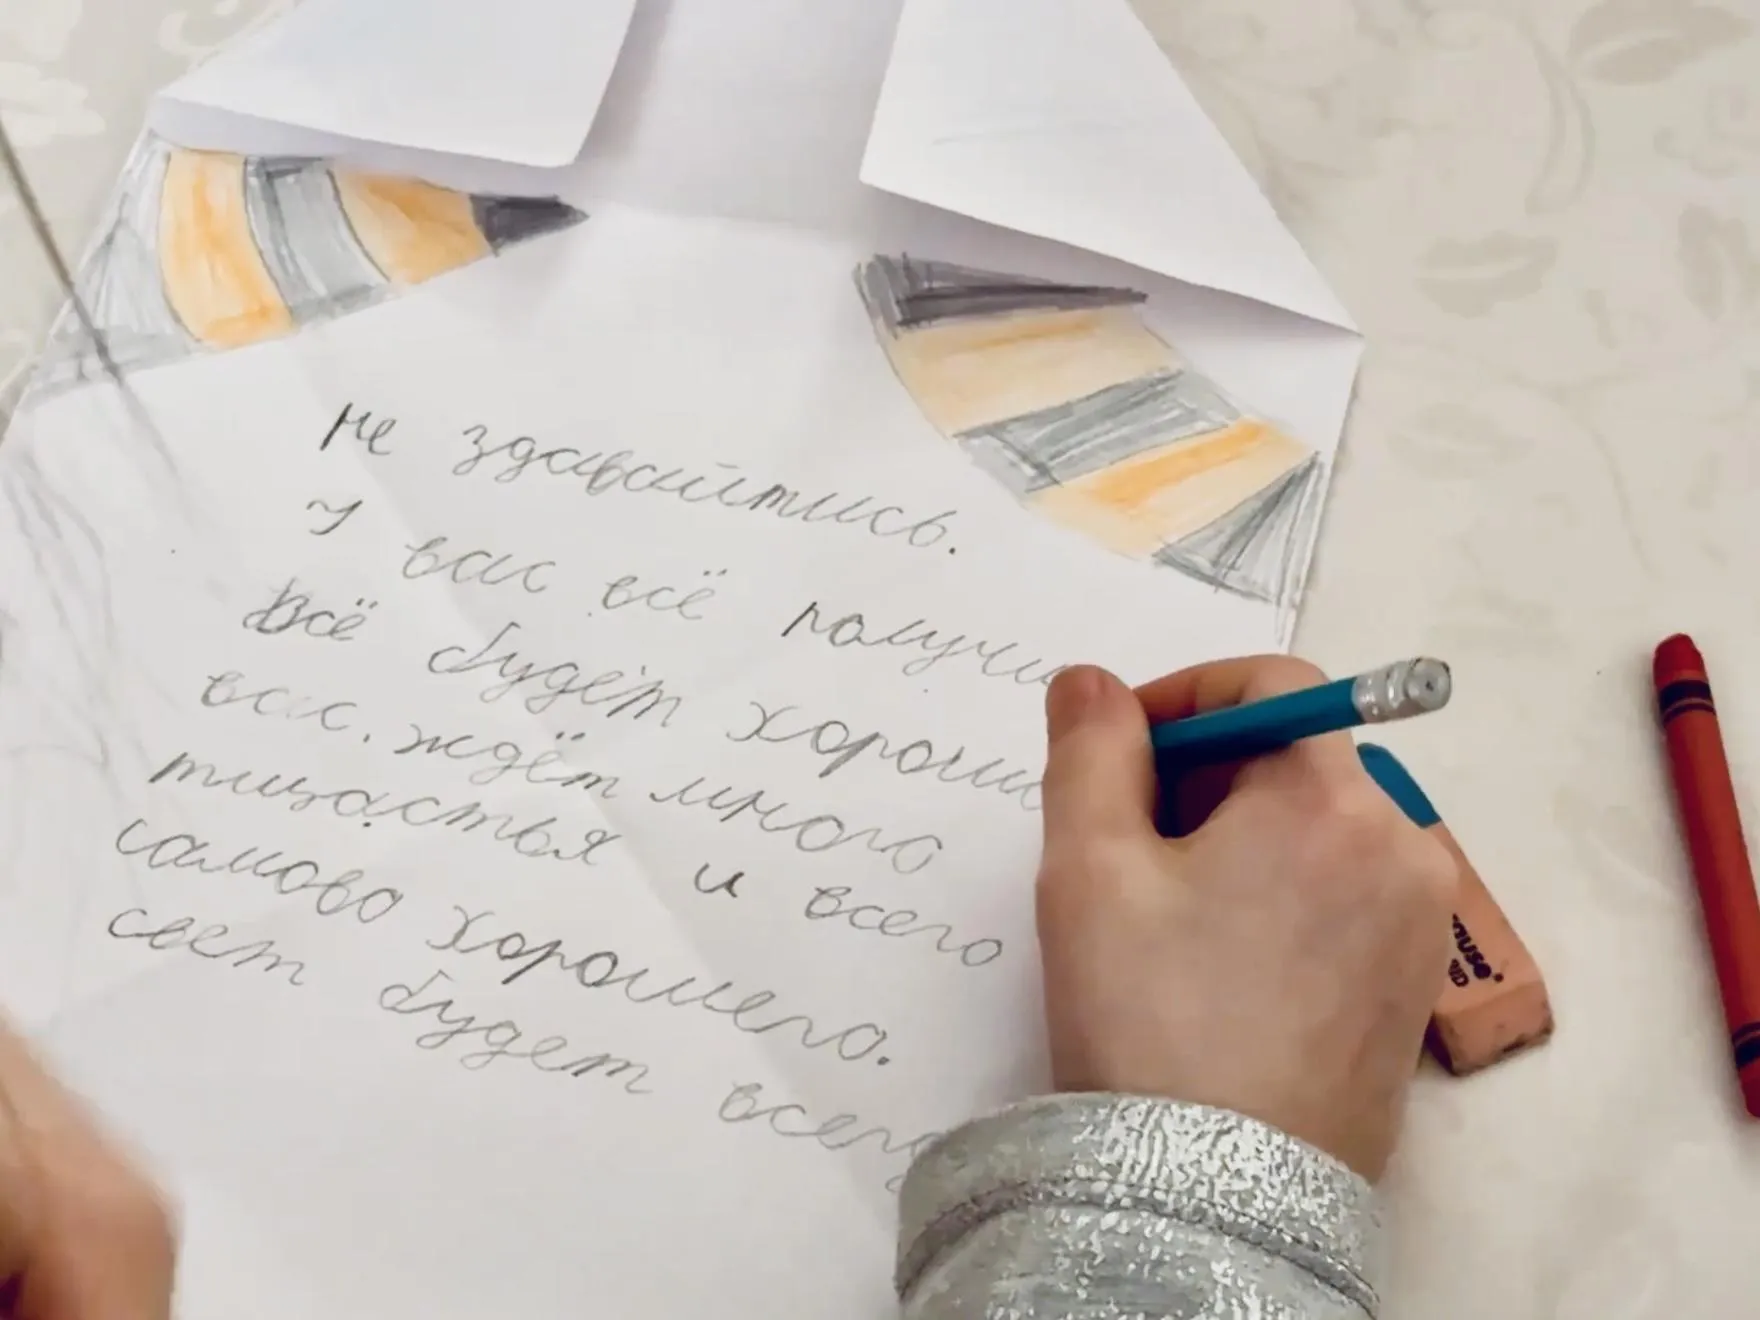 не здавайтись.
У вас всё получи
Всё будет хорошо
вас. ждёт много
тищастья и всего
самово хорошего.
свет будет всегд
ause